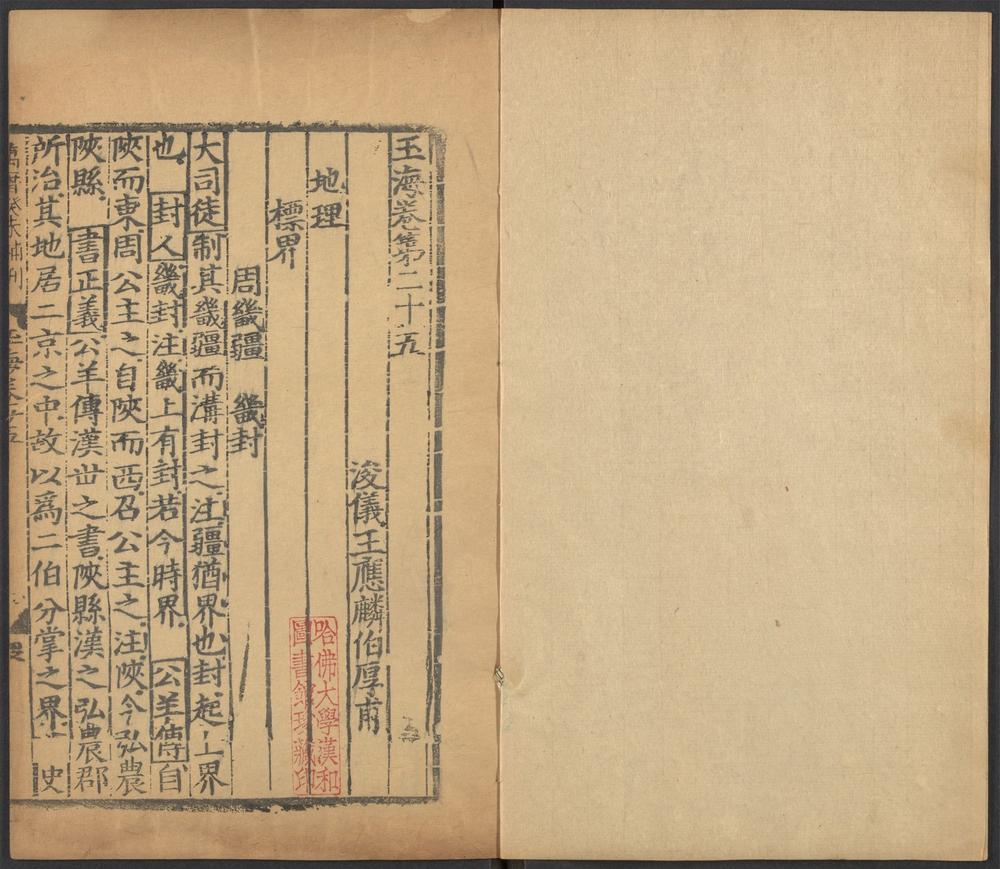 玉海卷第二十五
浚儀王應麟伯厚甫
地理
標界
周畿疆　畿封
大司徒制其畿疆而溝封之注疆猶界也封起土界
也　封人畿封注畿上有封若今時界　公羊傳自
陝而東周公主之自陝而西召公主之注陝今弘農
陝縣　書正義公羊傳漢世之書陝縣漢之弘農郡
所治其地居二京之中故以爲二伯分掌之界　史
哈佛大學漢和
圖書館珍藏印